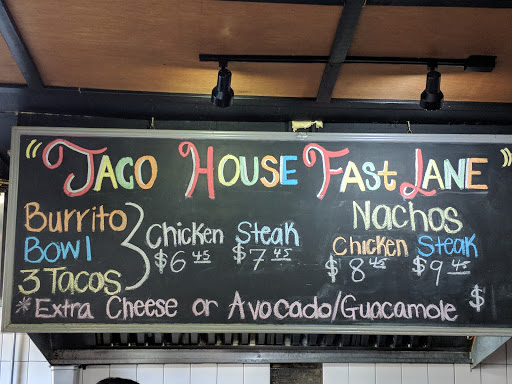 "TACO HOUSE FAST LANE"
Burrito
Bowl
3 Tacos
Chicken Steak
$6 45 $7 45
Nachos
Chicken Steak
$8 45 $9 45
*Extra Cheese or Avocado/Guacamole $